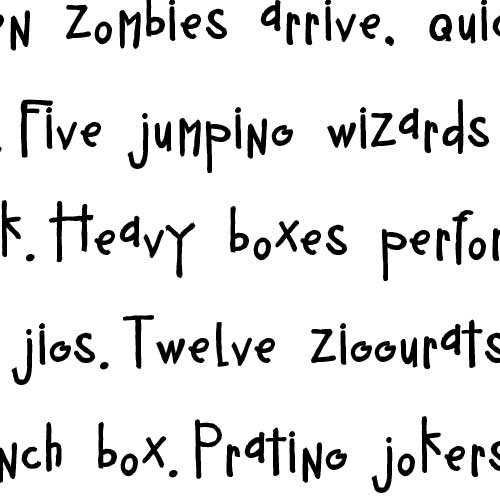 n zombies arrive, quic
. Five jumping wizards
k. Heavy boxes perfor
jigs. Twelve ziggurats
nch box. Prating jokers